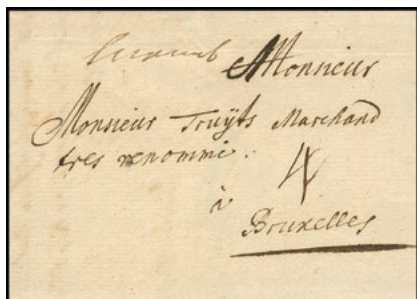 Monsieur
Monsieur Truyts Marchand
tres renommé.
4
à
Bruxelles